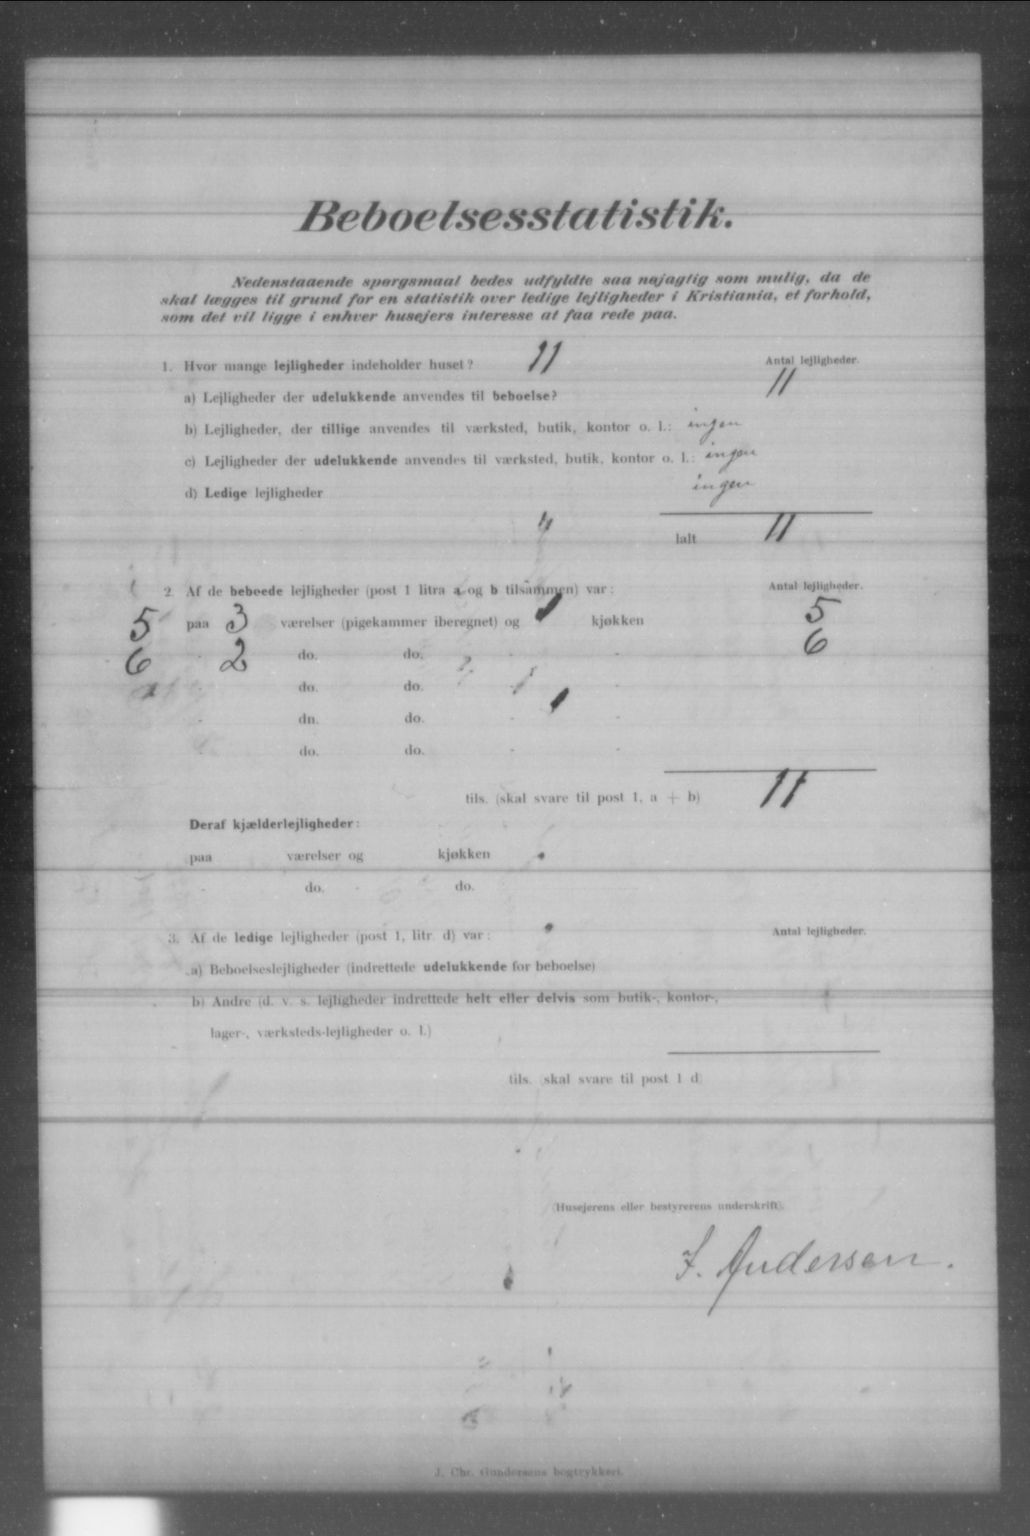 Beboelsesstatistik.
Nedenstaaende spørgsmaal bedes udfyldte saa nøjagtig som mulig, da de
skal lægges til grund for en statistik over ledige lejligheder i Kristiania, et forhold,
som det vil ligge i enhver husejers interesse at faa rede paa.
1. Hvor mange lejligheder indeholder huset? 11 Antal lejligheder.
a) Lejligheder der udelukkende anvendes til beboelse? 11
b) Lejligheder, der tillige anvendes til værksted, butik, kontor o. l.: ingen
c) Lejligheder der udelukkende anvendes til værksted, butik, kontor o. l.: ingen
d) Ledige lejligheder ingen
Ialt 11
2. Af de beboede lejligheder (post 1 litra a og b tilsammen) var: Antal lejligheder.
5 paa 3 værelser (pigekammer iberegnet) og 1 kjøkken 5
6 - 2 do. do. - - 6
- do. do. - -
- dn. do. - -
- do. do. - -
tils. (skal svare til post 1, a + b) 11
Deraf kjælderlejligheder:
paa værelser og kjøkken
- do. - do.
3. Af de ledige lejligheder (post 1, litr. d) var: Antal lejligheder.
a) Beboelseslejligheder (indrettede udelukkende for beboelse)
b) Andre (d. v. s. lejligheder indrettede helt eller delvis som butik-, kontor-,
lager-, værksteds-lejligheder o. l.)
tils. (skal svare til post 1 d)
(Husejerens eller bestyrerens underskrift).
J. Andersen.
J. Chr. Gundersens bogtrykkeri.